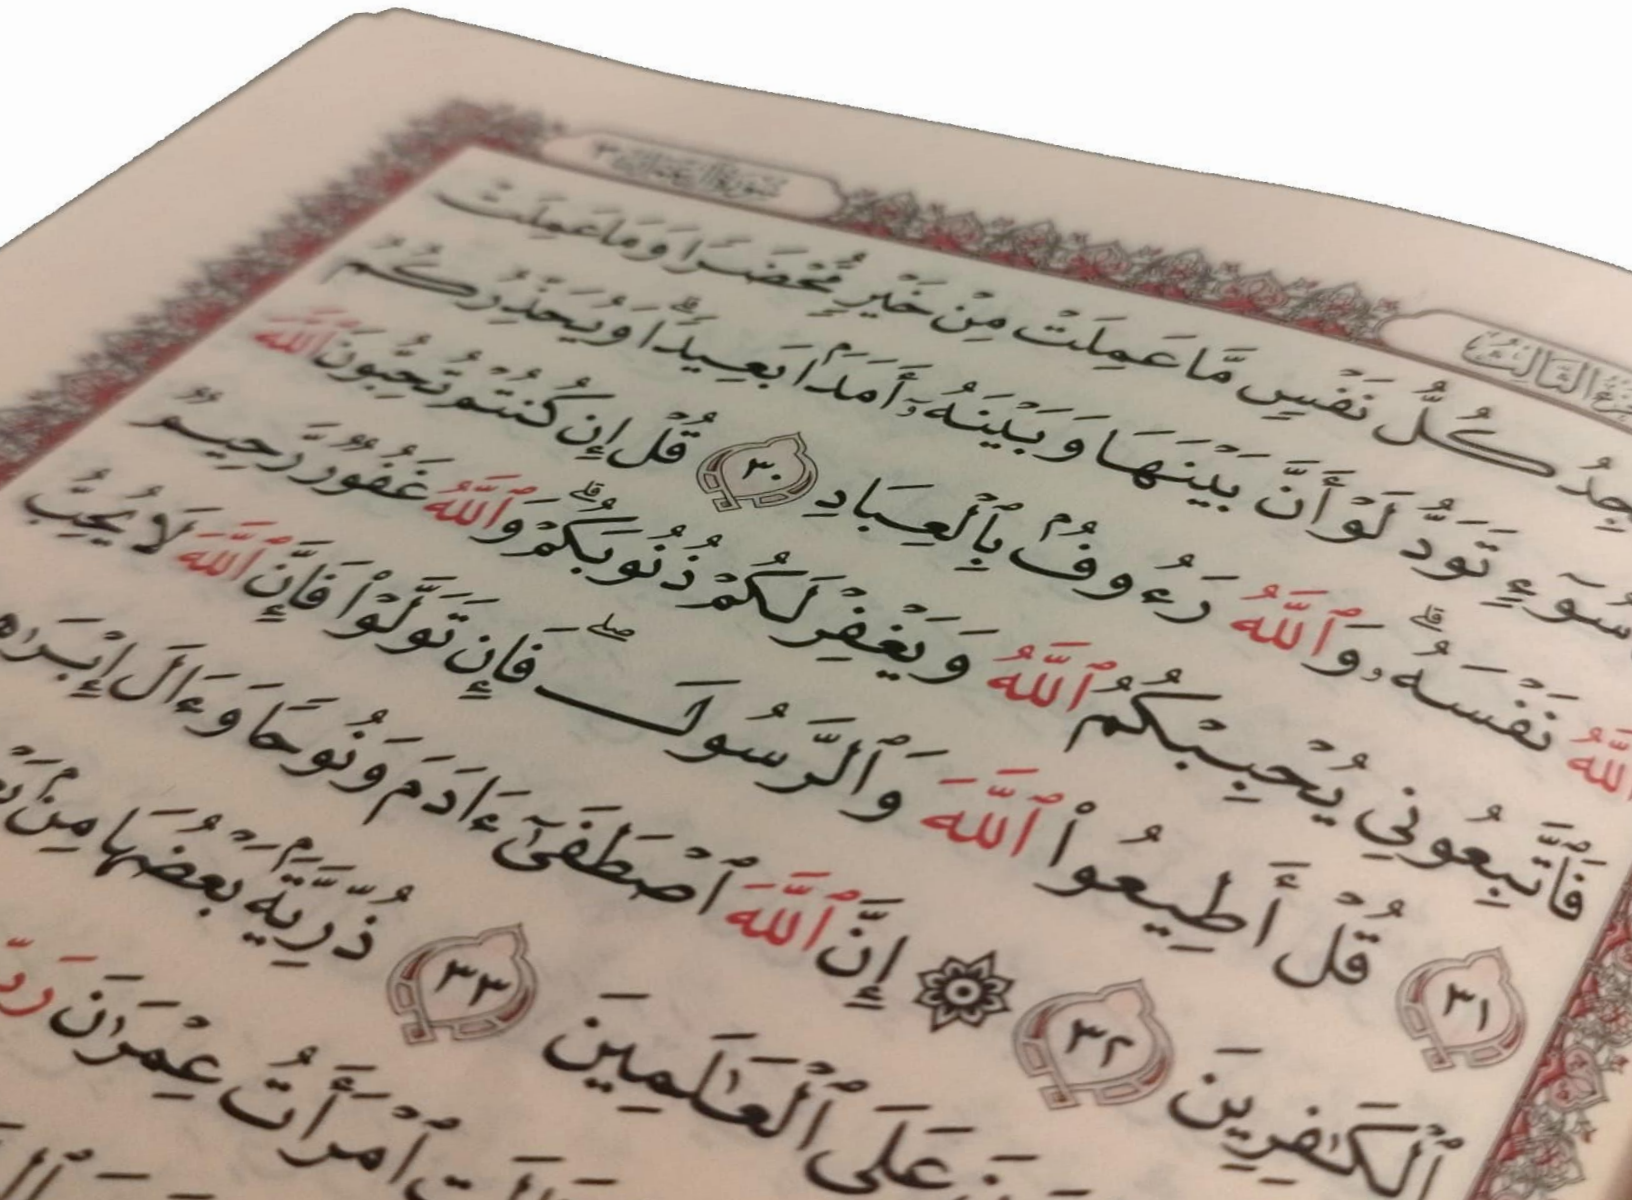 سُورَةُ آلِ عِمْرَانَ ٣
الثَّالِثُ
كُلُّ نَفْسٍ مَّا عَمِلَتْ مِنْ خَيْرٍ مُّحْضَرًا وَمَا عَمِلَتْ
تَوَدُّ لَوْ أَنَّ بَيْنَهَا وَبَيْنَهُۥٓ أَمَدَۢا بَعِيدًاۗ وَيُحَذِّرُكُمُ
ٱللَّهُ نَفْسَهُۥۗ وَٱللَّهُ رَءُوفُۢ بِٱلْعِبَادِ ٣٠ قُلْ إِن كُنتُمْ تُحِبُّونَ ٱللَّهَ
فَٱتَّبِعُونِي يُحْبِبْكُمُ ٱللَّهُ وَيَغْفِرْ لَكُمْ ذُنُوبَكُمْۗ وَٱللَّهُ غَفُورٌ رَّحِيمٌ
٣١ قُلْ أَطِيعُوا۟ ٱللَّهَ وَٱلرَّسُولَۖ فَإِن تَوَلَّوْا۟ فَإِنَّ ٱللَّهَ لَا يُحِبُّ
ٱلْكَـٰفِرِينَ ٣٢ ۞ إِنَّ ٱللَّهَ ٱصْطَفَىٰٓ ءَادَمَ وَنُوحًا وَءَالَ
عَلَى ٱلْعَـٰلَمِينَ ٣٣ ذُرِّيَّةَۢ بَعْضُهَا مِنۢ
ٱمْرَأَتُ عِمْرَٰنَ